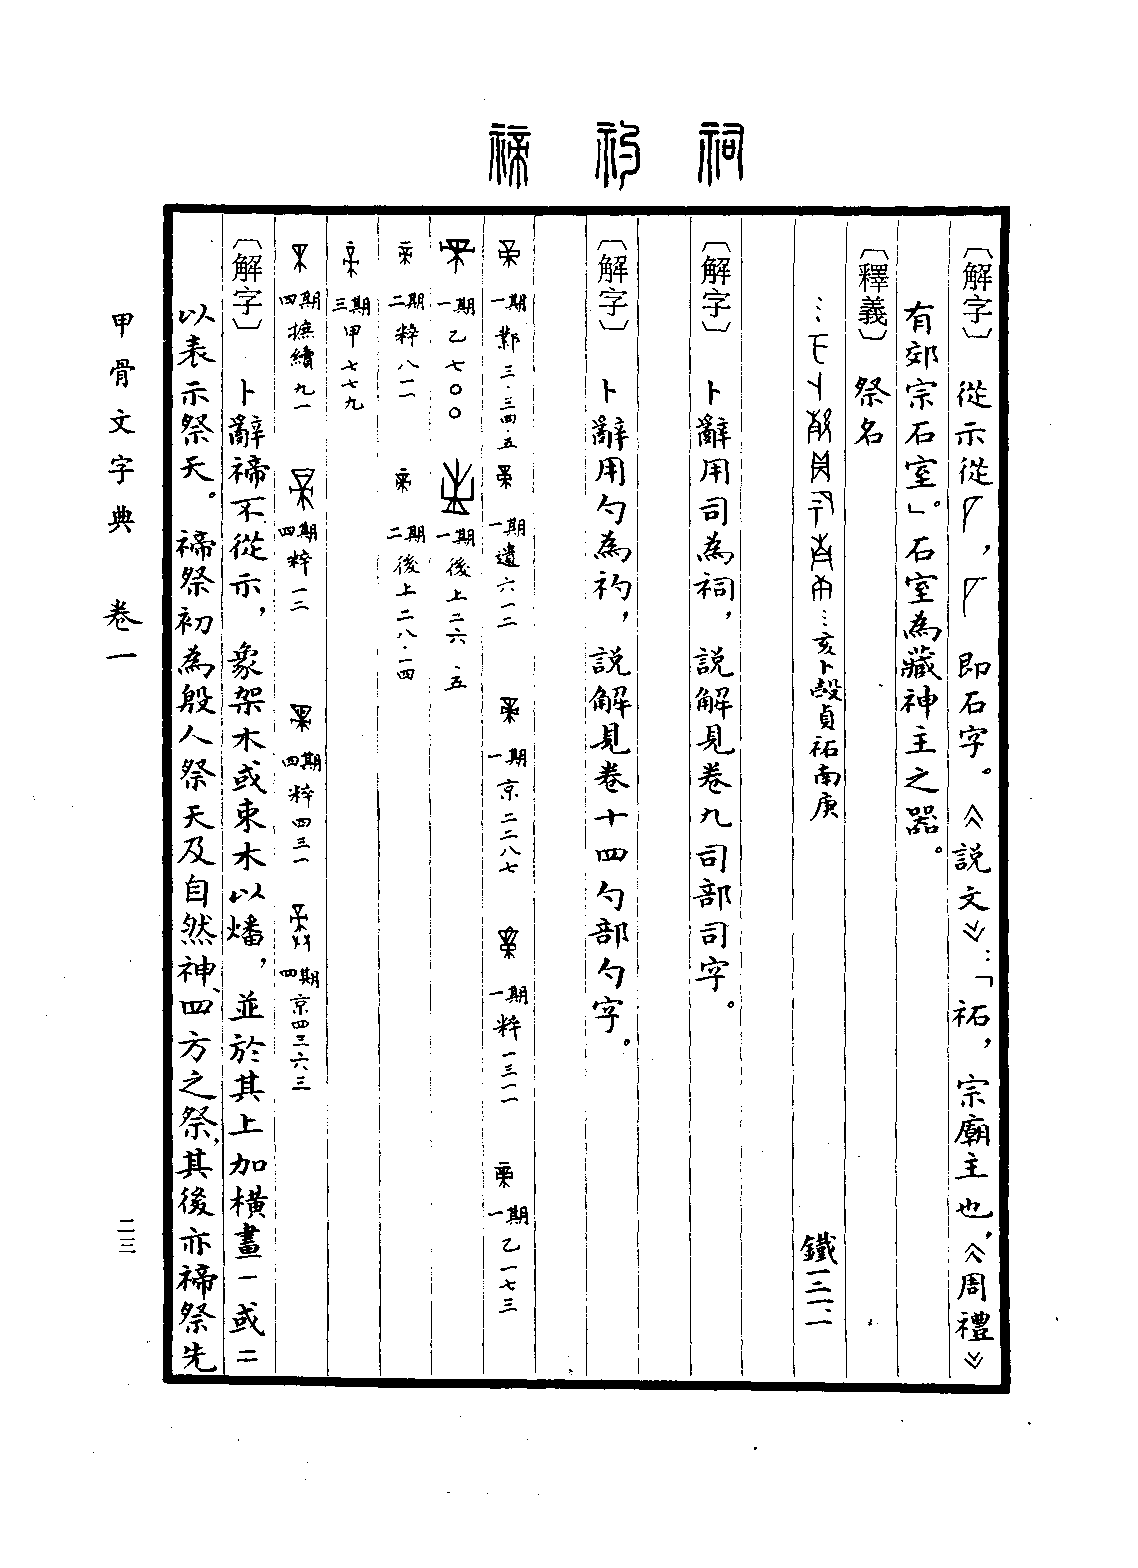 祠 礿 禘
〔解字〕 從示從，即石字。《說文》：「祏，宗廟主也，《周禮》
有郊宗石室。」石室為藏神主之器。
〔釋義〕祭名
…亥卜㱿貞祏南庚 鐵一三一、一
〔解字〕 卜辭用司為祠，說解見卷九司部司字。
〔解字〕 卜辭用勺為礿，說解見卷十四勺部勺字。
一期鄴三·三四·五 一期遺六一二 一期京二二八七 一期粹一三一一 一期乙一七三
一期乙七〇〇 一期後上二六·五
二期粹八一一 二期後上二八·一四
三期甲七七九
四期摭續九一 四期粹一二 四期粹四三一 四期京四三六三
〔解字〕 卜辭禘不從示，象架木或束木以燔，並於其上加橫畫一或二
以表示祭天。禘祭初為殷人祭天及自然神、四方之祭，其後亦禘祭先
甲骨文字典 卷一 二三